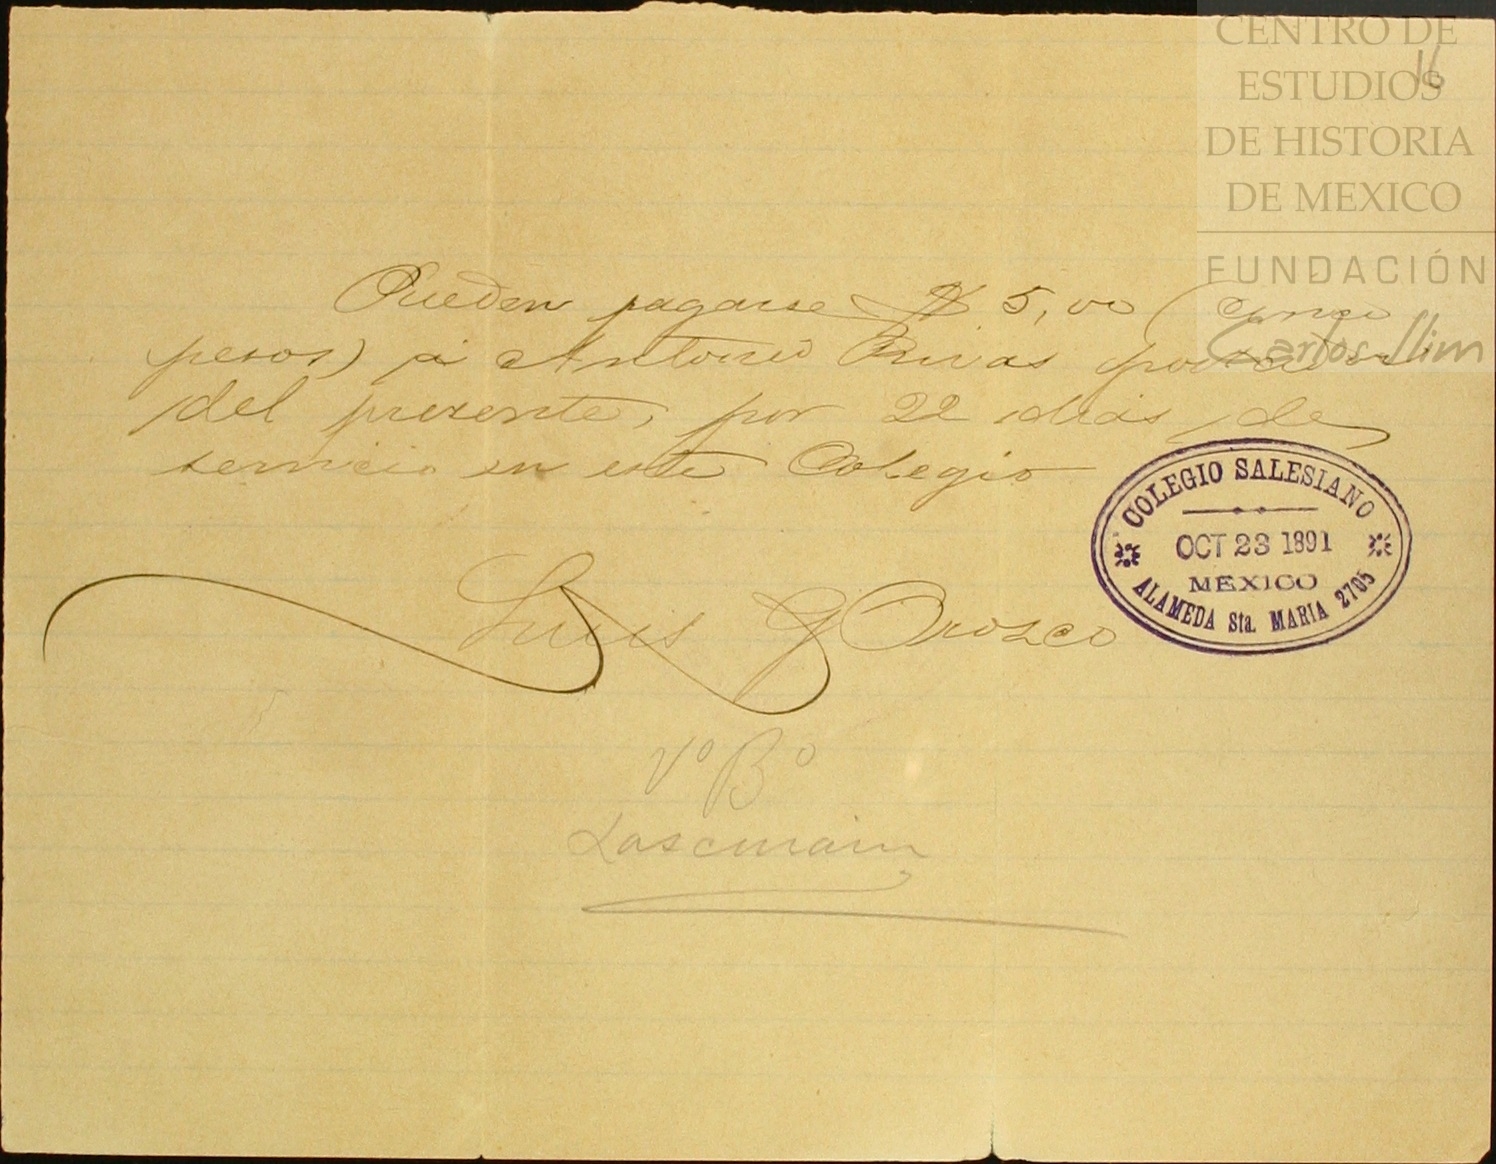 CENTRO DE
ESTUDIOS
DE HISTORIA
DE MEXICO
FUNDACIÓN
Carlos Slim
16
Pueden pagarse $ 5,00 (cinco
pesos) á Antonio Rivas portador
del presente, por 22 dias de
servicio en este Colegio
COLEGIO SALESIANO
OCT 23 1891
MEXICO
ALAMEDA Sta. MARIA 2705
Luis G Orozco
Vº Bº
Lascurain